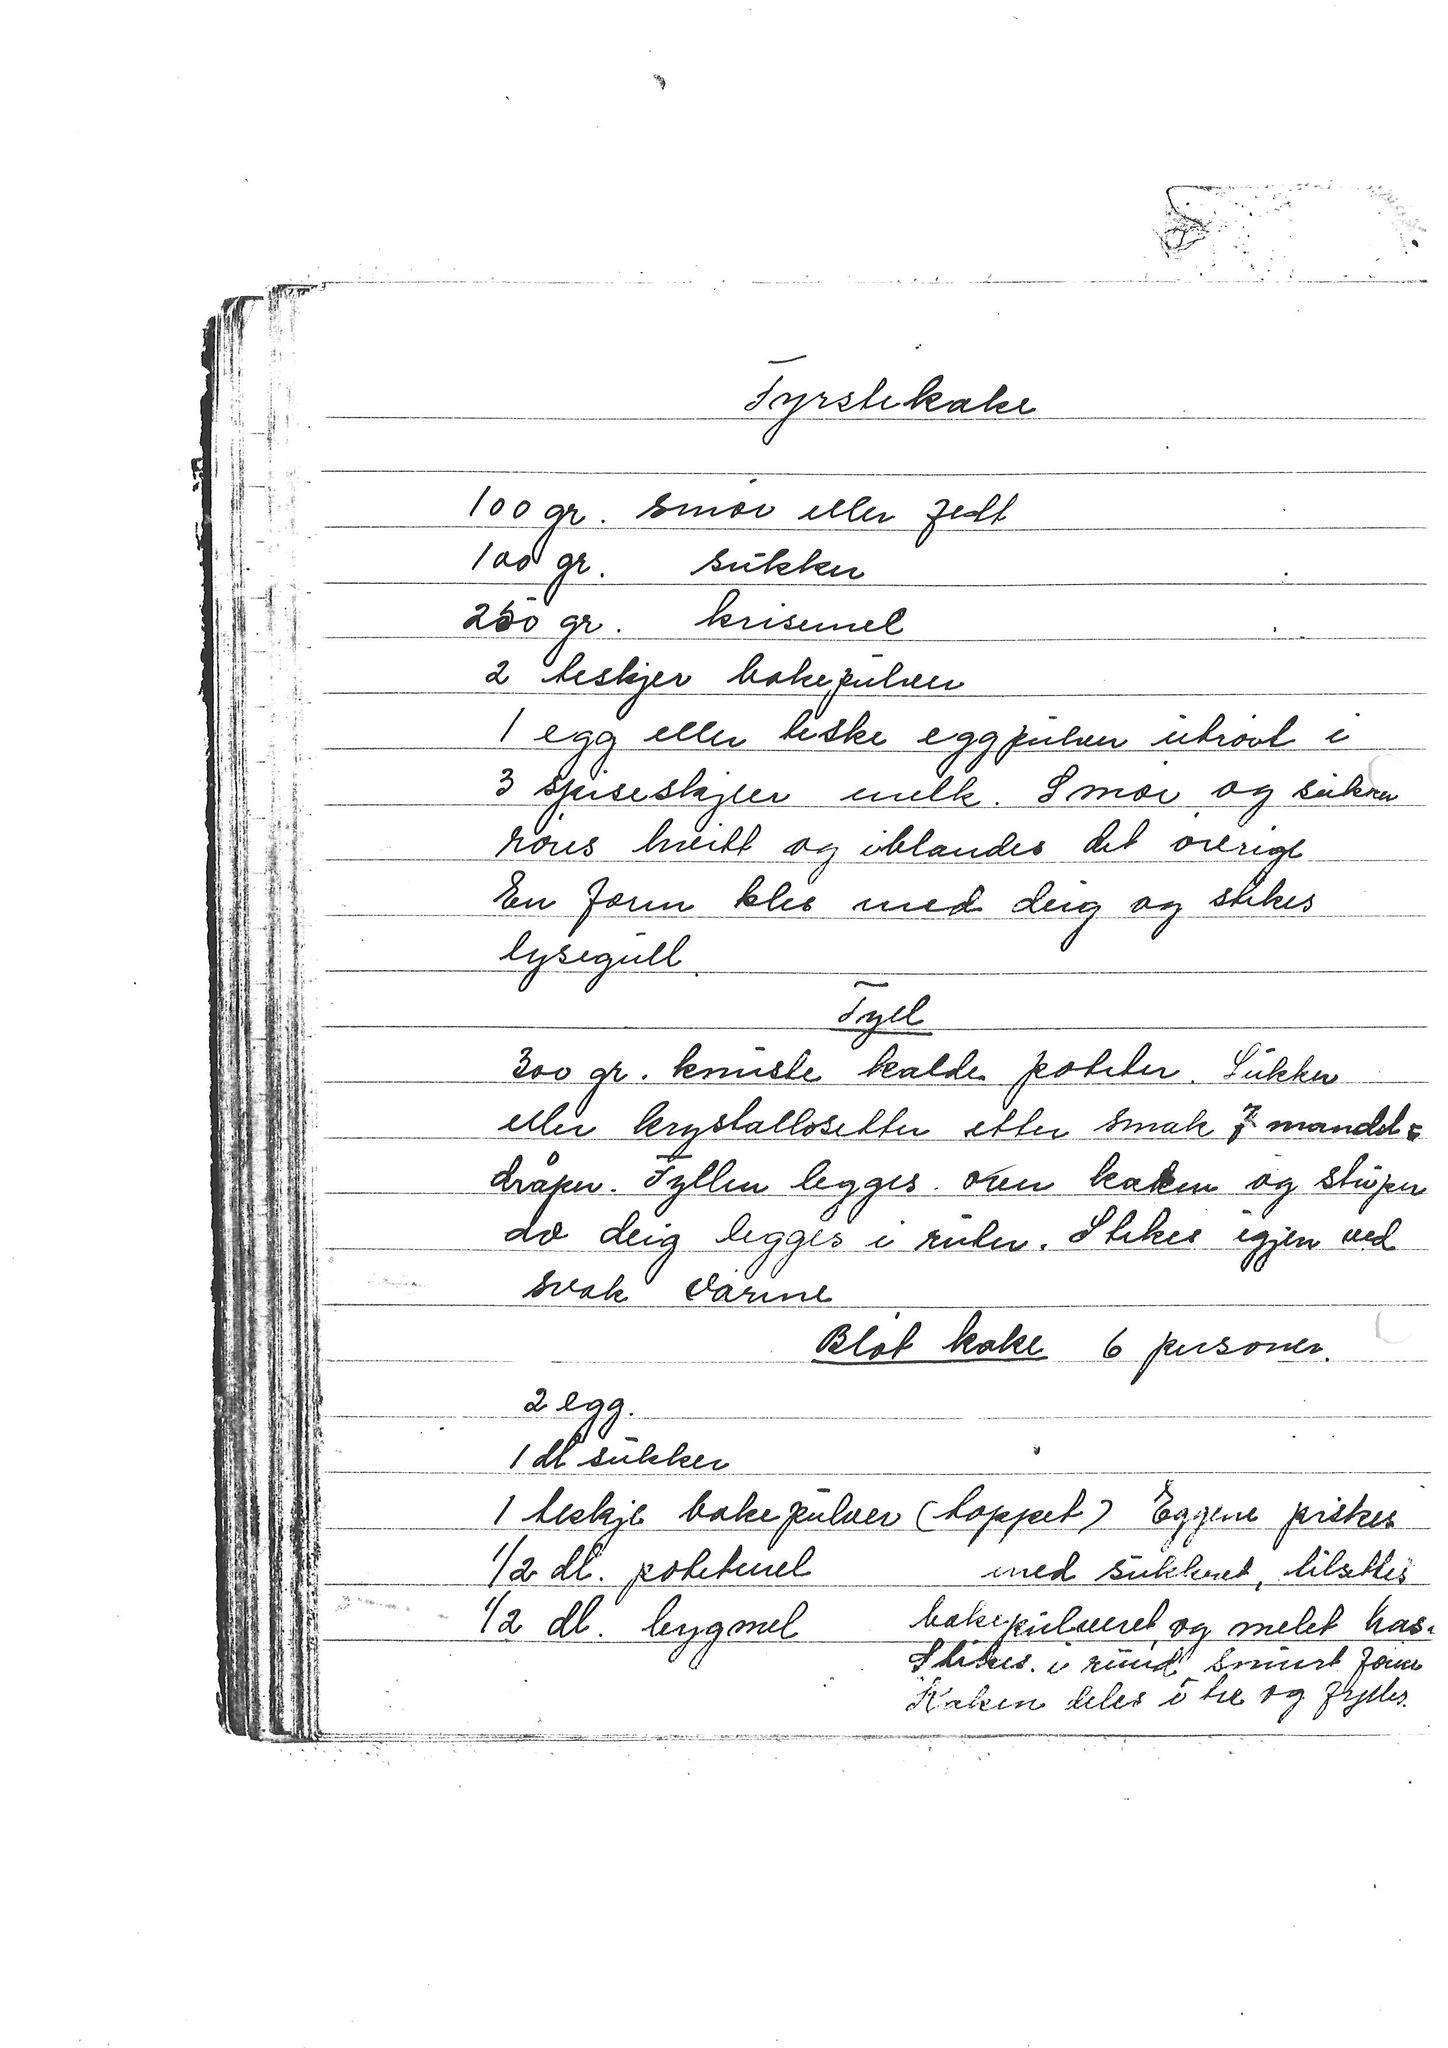 Fyrstekake
100 gr. smör eller fedt
100 gr. sukker
250 gr. krisemel
2 teskjer bakepulver
1 egg eller teske eggpulver utrört i
3 spiseskjeer melk. Smör og sukker
röres hvitt og iblandes det övrige
En form kles med deig og stekes
lysegull.
Fyll
300 gr. knuste kalde poteter. Sukker
eller krystallosetter etter smak 7 mandel=
dråper. Fyllen legges over kaken og striper
av deig legges i ruter. Stekes igjen ved
svak varme
Blöt kake 6 personer.
2 egg.
1 dl sukker
1 teskje bakepulver (toppet) Eggene piskes
1/2 dl. potetmel med sukkeret, tilsettes
1/2 dl. bygmel bakepulveret og melet has.
Stekes i rund smurt form
Kaken deles i tre og fylles.